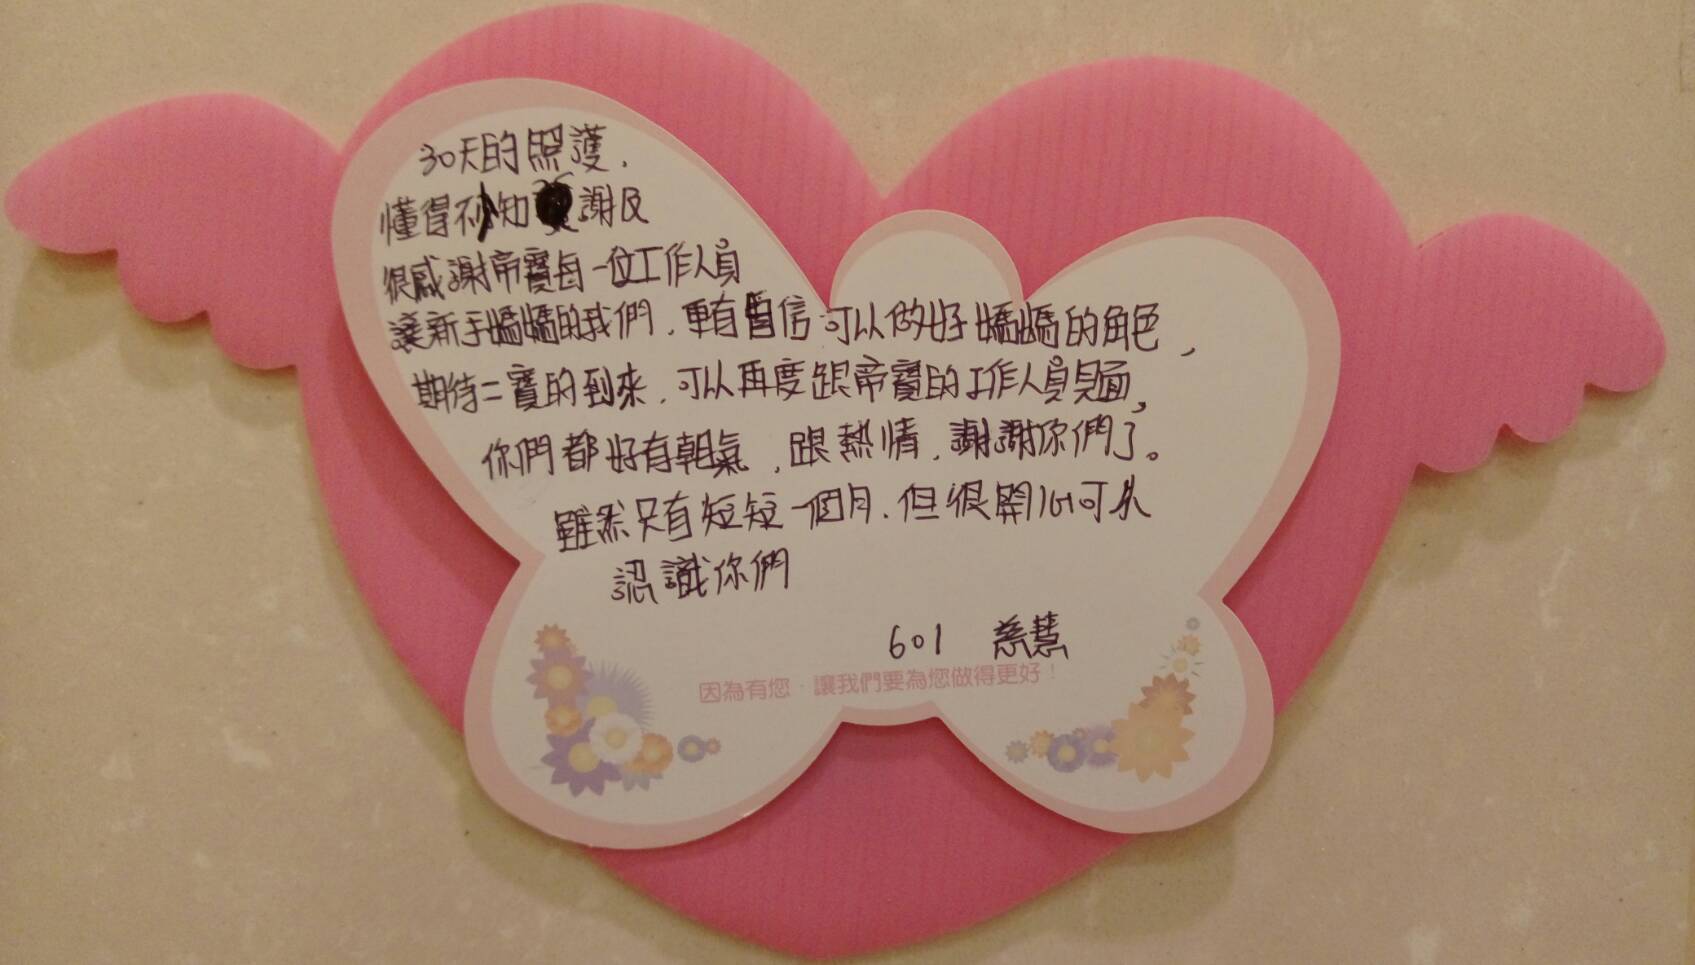 30天的照護，
懂得不知 謝及
很感謝帝寶每一位工作人員
讓新手媽媽的我們，更有自信可以做好媽媽的角色，
期待二寶的到來，可以再度跟帝寶的工作人員見面，
你們都好有朝氣，跟熱情，謝謝你們了。
雖然只有短短一個月，但很開心可以
認識你們
601 慈慧
因為有您，讓我們要為您做得更好！